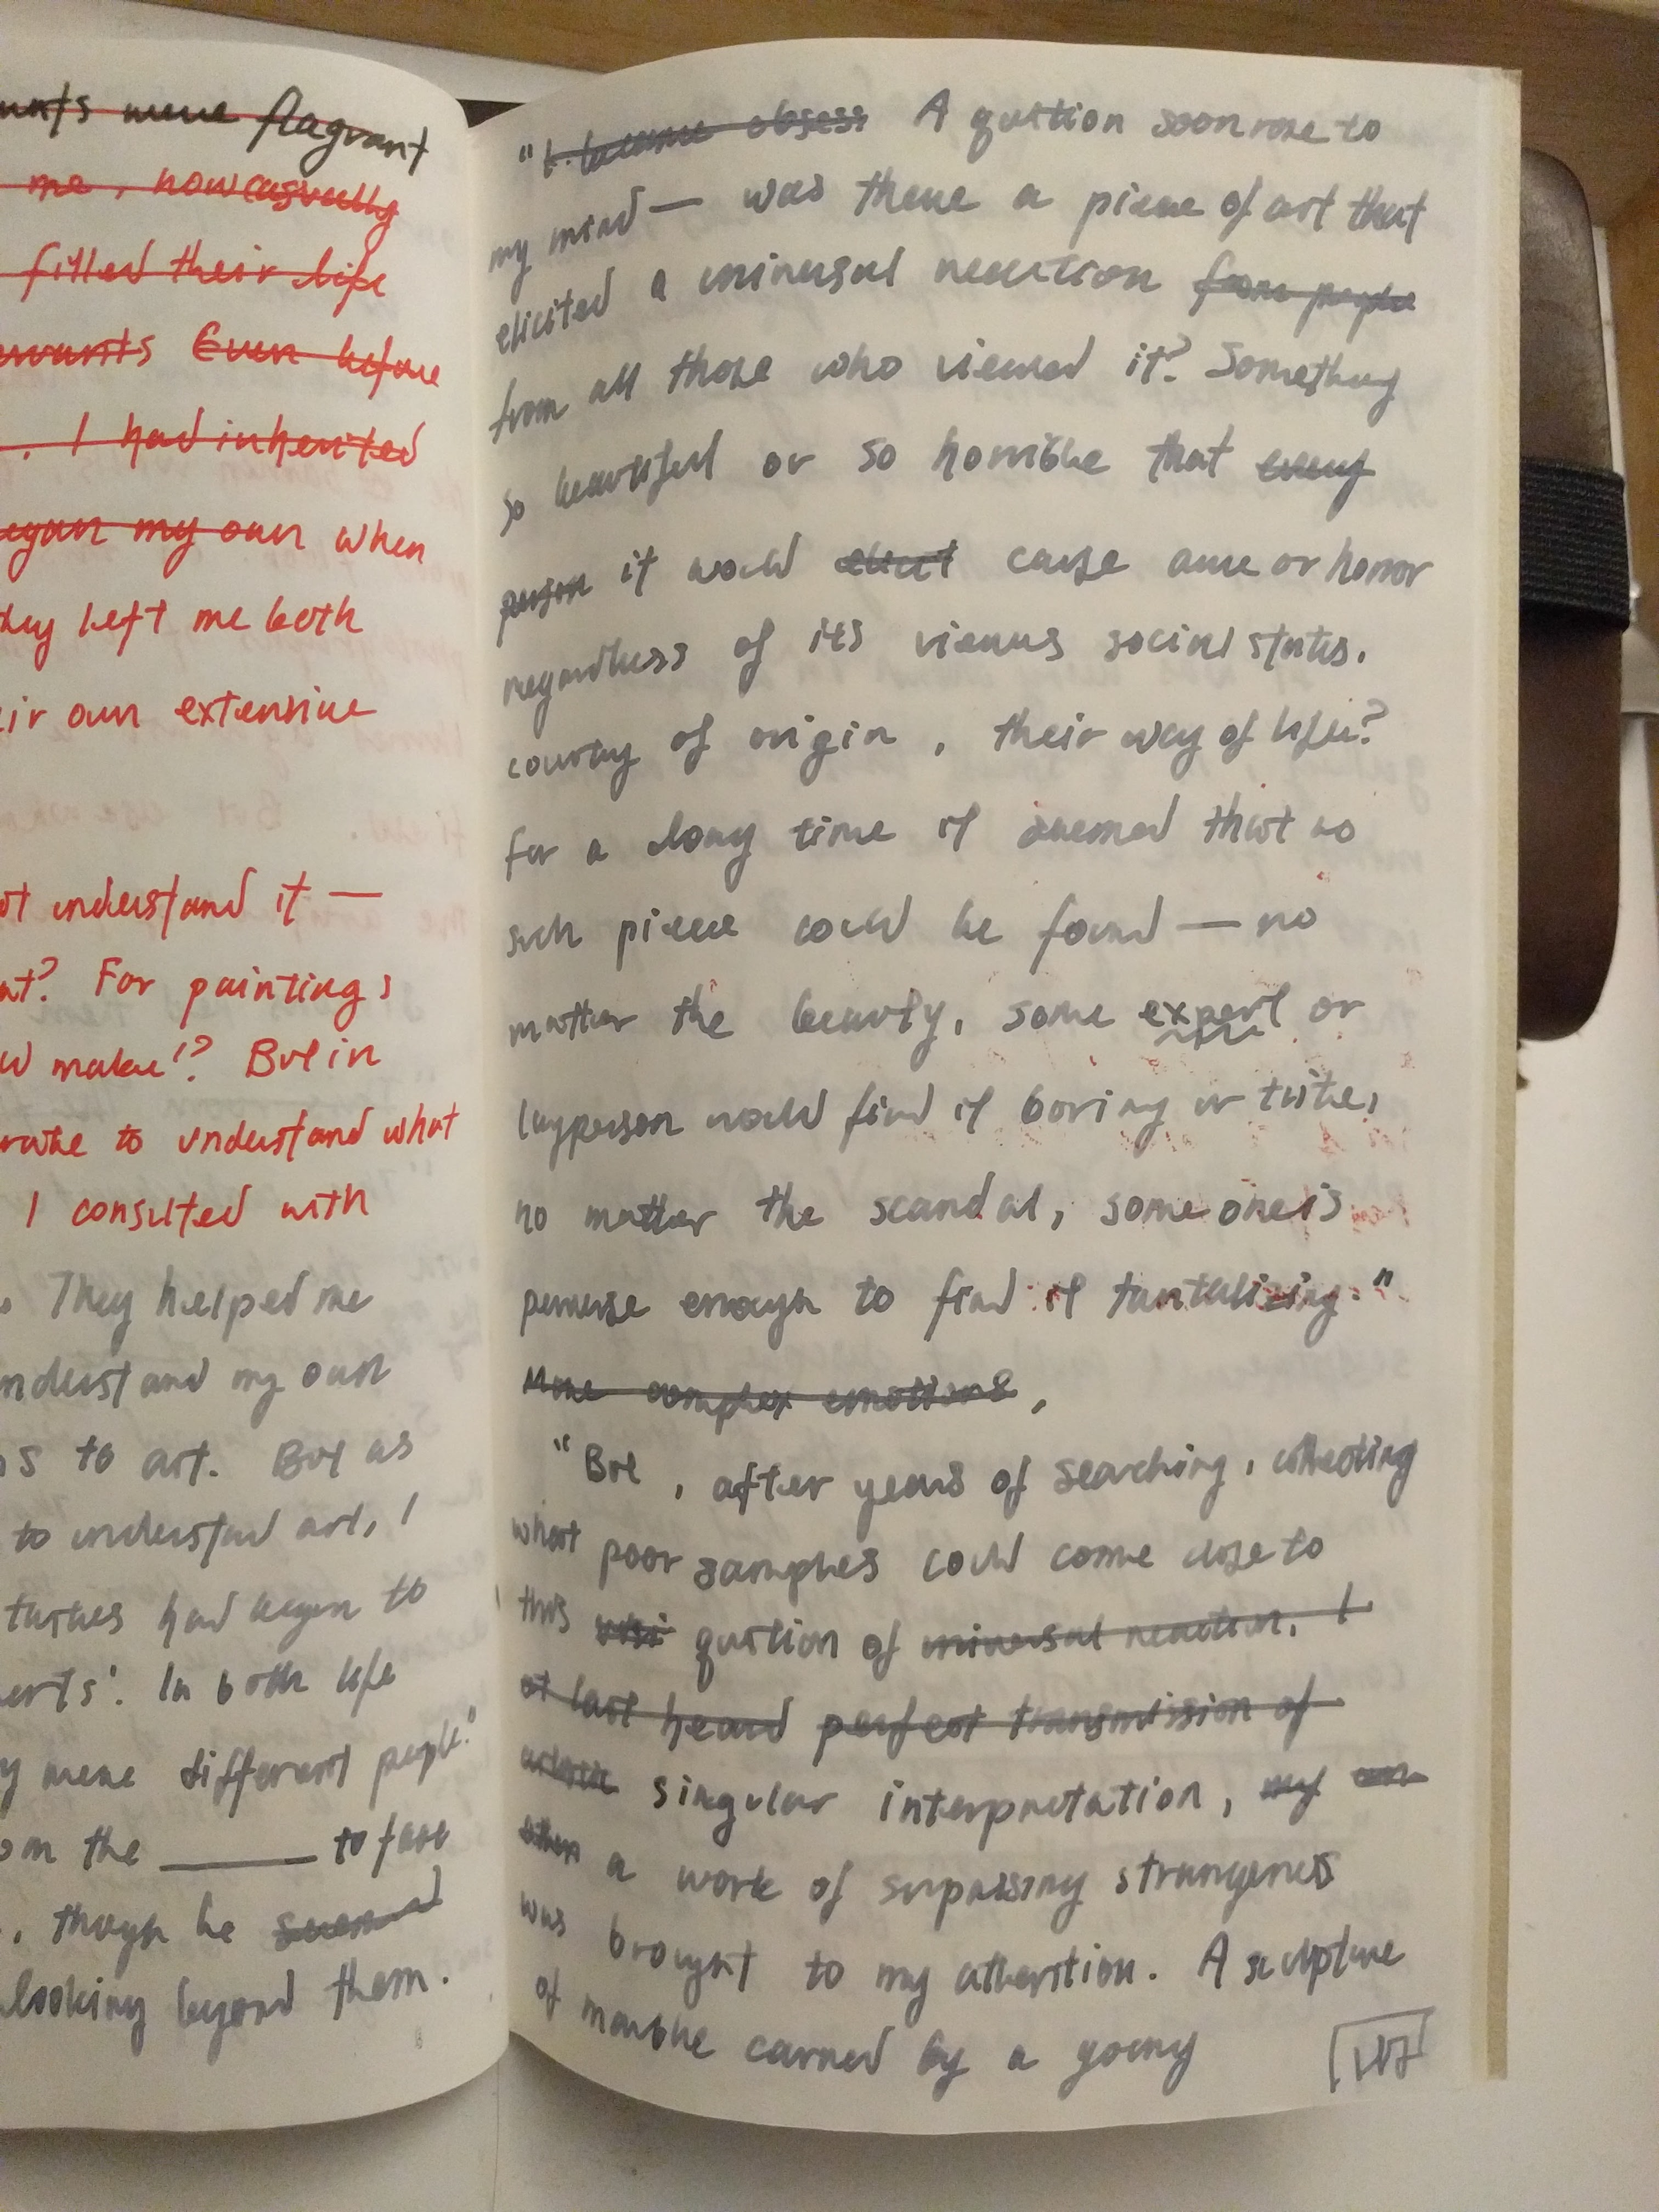 nts were flagrant
me, now casually
filled their life
ervants Even before
. I had inherited
egan my own when
they left me both
eir own extensive
ot understand it —
at? For paintings
make'? But in
to understand what
I consulted with
. They helped me
understand my own
s to art. But as
to understand art, I
tastes had begun to
erts'. In both life
y were different people."
om the ______ to face
, though he seemed
looking beyond them.
"I became obsess A question soon rose to
my mind — was there a piece of art that
elicited a universal reaction from people
from all those who viewed it? Something
so beautiful or so horrible that every
person it would elicit cause awe or horror
regardless of its viewers social status,
country of origin, their way of life?
for a long time it seemed that no
such piece could be found — no
matter the beauty, some expert or
layperson would find it boring or trite,
no matter the scandal, someone is
perverse enough to find it tantalizing."
More complex emotions,
"But, after years of searching, collecting
what poor samples could come close to
this qustion of universal reaction, I
at last heard perfect transmission of
singular interpretation, my own
a work of surpassing strangeness
was brought to my attention. A sculpture
of marble carved by a young